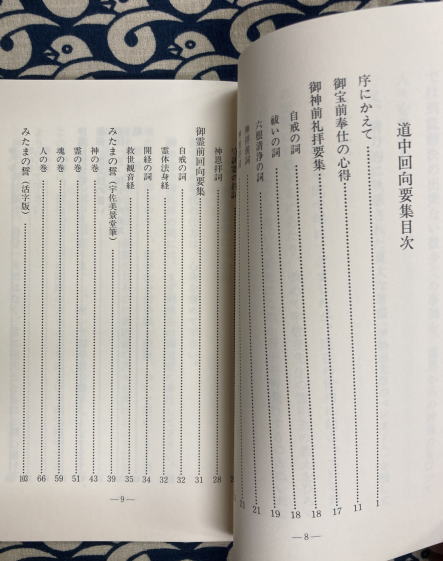 道中回向要集目次
序にかえて……1
御宝前奉仕の心得……11
御神前礼拝要集……17
自戒の詞……18
祓いの詞……18
六根清浄の詞……19
21
神恩拝詞……28
御霊前回向要集……31
自戒の詞……32
霊体法身経……32
開経の詞……34
救世観音経……35
みたまの誓（宇佐美景堂筆）……39
神の巻……43
霊の巻……51
魂の巻……59
人の巻……66
みたまの誓（活字版）……103
—8—
—9—